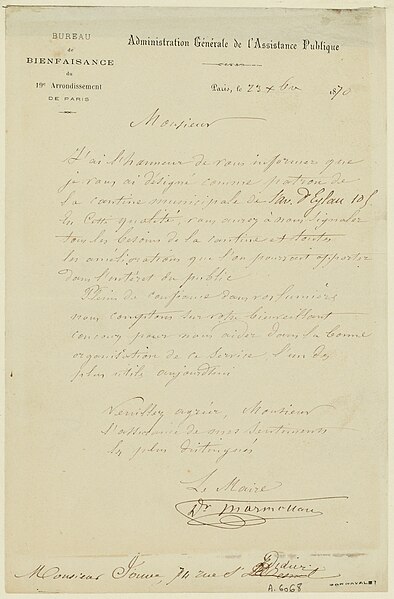 BUREAU
de
BIENFAISANCE
du
19e Arrondissement
DE PARIS
Administration Générale de l'Assistance Publique
Paris, le 23 Xbre 1870
Monsieur
J'ai l'honneur de vous informer que
je vous ai désigné comme patron de
la cantine municipale de l'av. d'Eylau 105
En cette qualité, vous aurez à nous signaler
tous les besoins de la cantine et toutes
les améliorations que l'on pourrait apporter
dans l'intérêt du public
Plein de confiance dans vos lumières
nous comptons sur votre bienveillant
concours pour nous aider dans la bonne
organisation de ce service, l'un des
plus utiles aujourd'hui
Veuillez agréer, Monsieur
l'assurance de mes sentiments
les plus distingués
Le Maire
Dr Marmottan
Didier
Monsieur Jouve, 74 rue St
A.6068